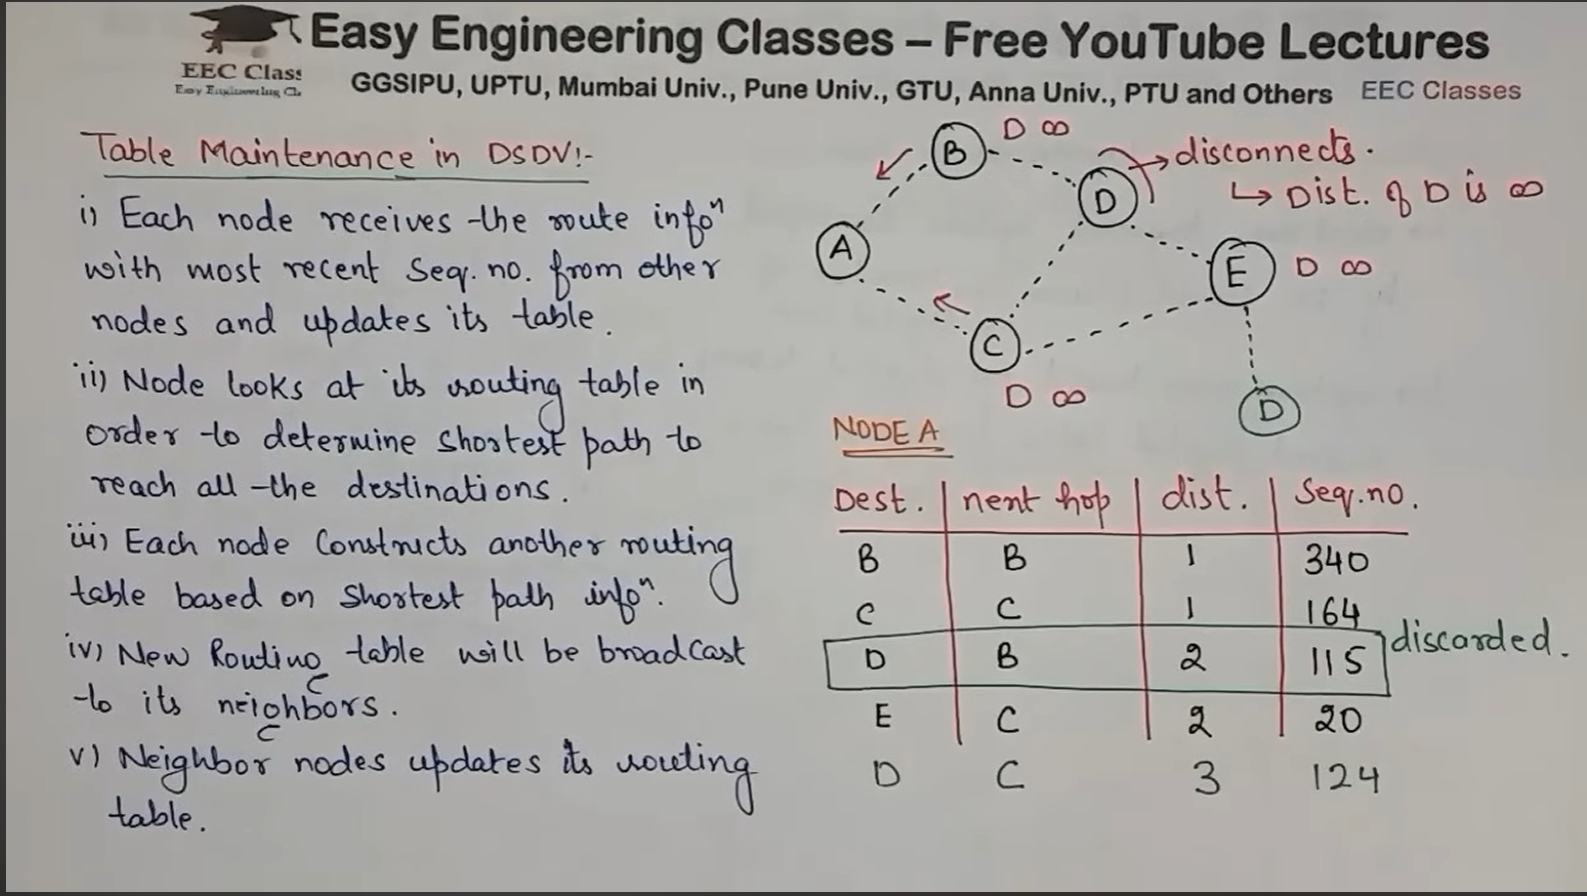 Easy Engineering Classes – Free YouTube Lectures
EEC Class
GGSIPU, UPTU, Mumbai Univ., Pune Univ., GTU, Anna Univ., PTU and Others EEC Classes
Table Maintenance in DSDV:-
i) Each node receives the route infoⁿ
with most recent Seq. no. from other
nodes and updates its table.
ii) Node looks at its routing table in
order to determine shortest path to
reach all the destinations.
iii) Each node Constructs another routing
table based on shortest path infoⁿ.
iv) New Routing table will be broadcast
to its neighbors.
v) Neighbor nodes updates its routing
table.
B D ∞
D → disconnects.
↳ Dist. of D is ∞
A
E D ∞
C
D ∞
D
NODE A
Dest. next hop dist. Seq.no.
B B 1 340
C C 1 164
D B 2 115 discarded.
E C 2 20
D C 3 124